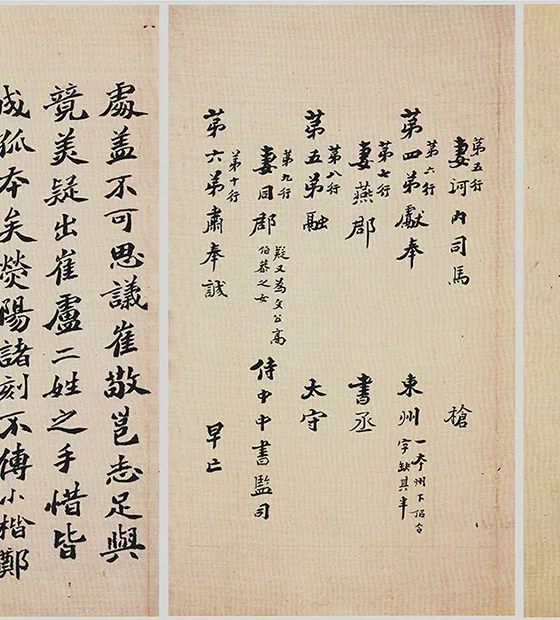 第五行
妻河内司馬 槍
第六行
第四弟獻奉 東州
一本州下
字缺其半
第七行
妻燕郡 書丞
第八行
第五弟融 太守
第九行
妻同郡
疑又為文公高
伯恭之女
侍中中書監司
第十行
第六弟肅奉誠 早亡
處盖不可思議崔敬邕志足與
竟美疑出崔盧二姓之手惜皆
成孤本矣滎陽諸刻不傳小楷鄭